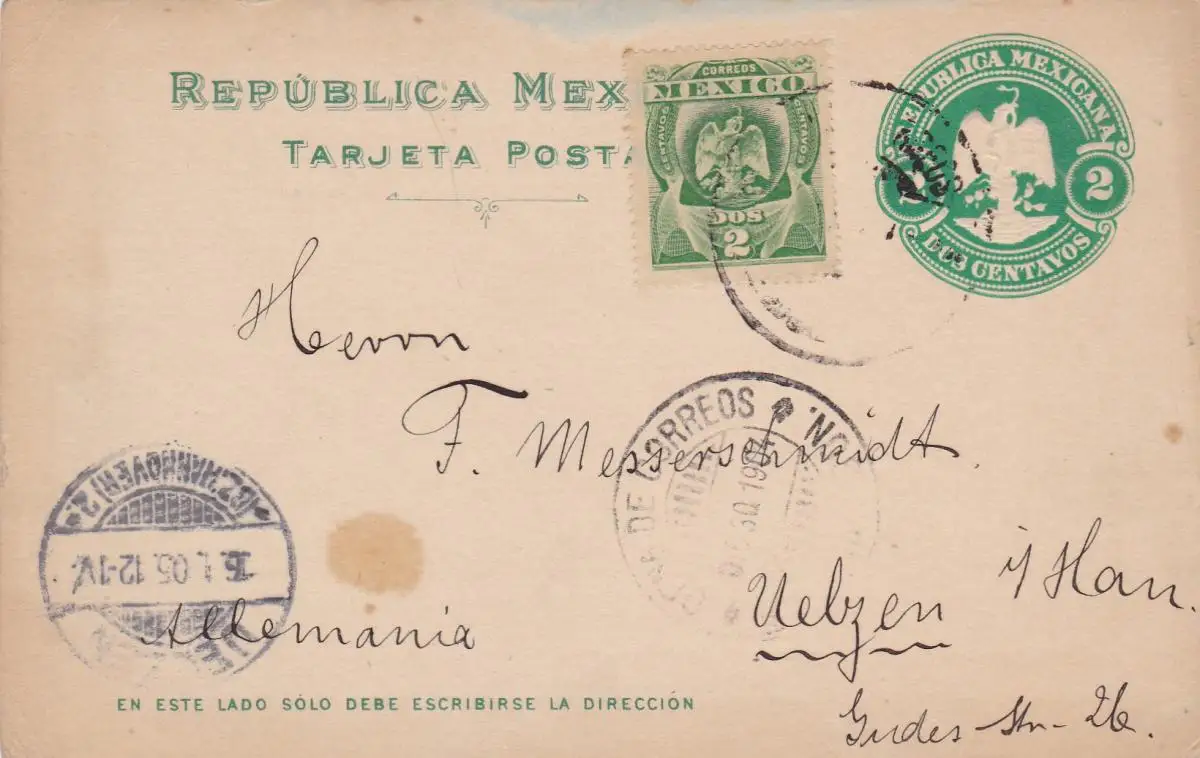 REPÚBLICA MEX
TARJETA POSTA
CORREOS
MEXICO
CENTAVOS
CENTAVOS
DOS
2
REPUBLICA MEXICANA
2
DOS CENTAVOS
Herrn
F. Messerschmidt
DE CORREOS
1904
(BZ. HANNOVER) 2.
1.05.12-1V.
Allemania
Uelzen i/Han.
EN ESTE LADO SÓLO DEBE ESCRIBIRSE LA DIRECCIÓN
Gudes-Str- 26.